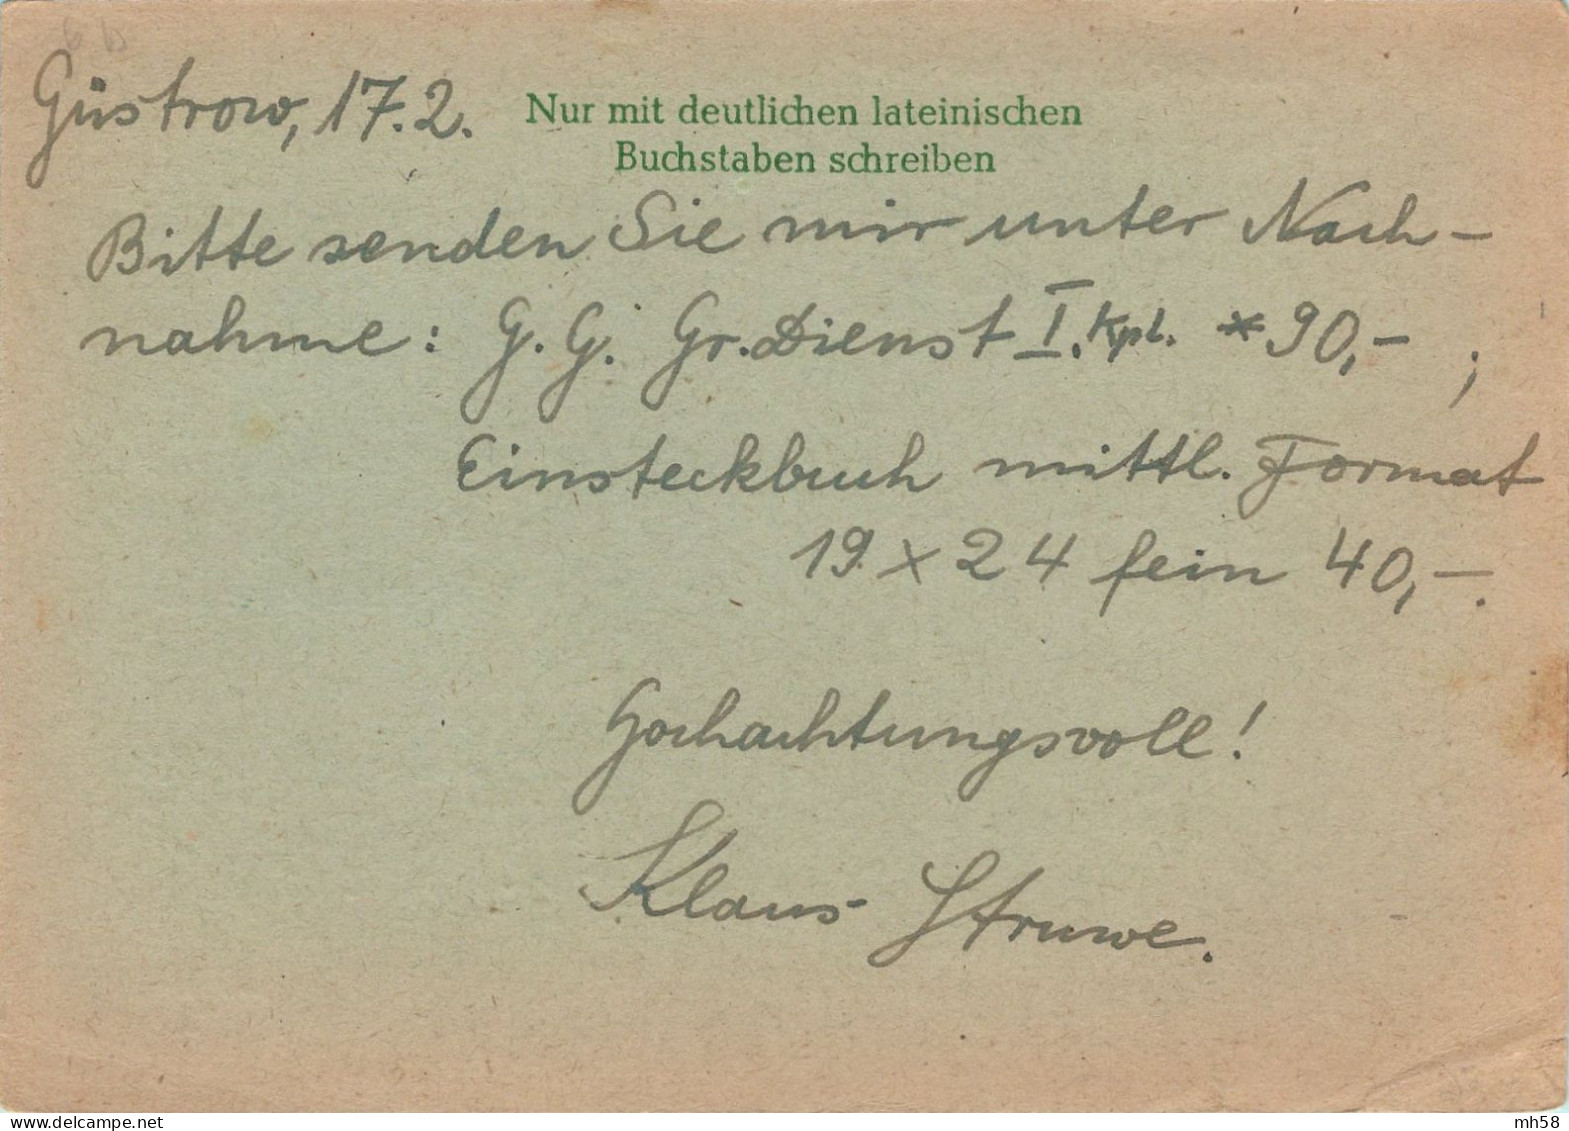 Güstrow, 17.2.
Nur mit deutlichen lateinischen
Buchstaben schreiben
Bitte senden Sie mir unter Nach-
nahme: G. G. Gr. Dienst I. kpl. * 90,- ;
Einsteckbuch mittl. Format
19 x 24 fein 40,-.
Hochachtungsvoll!
Klaus Struwe.
www.delcampe.net
mh58